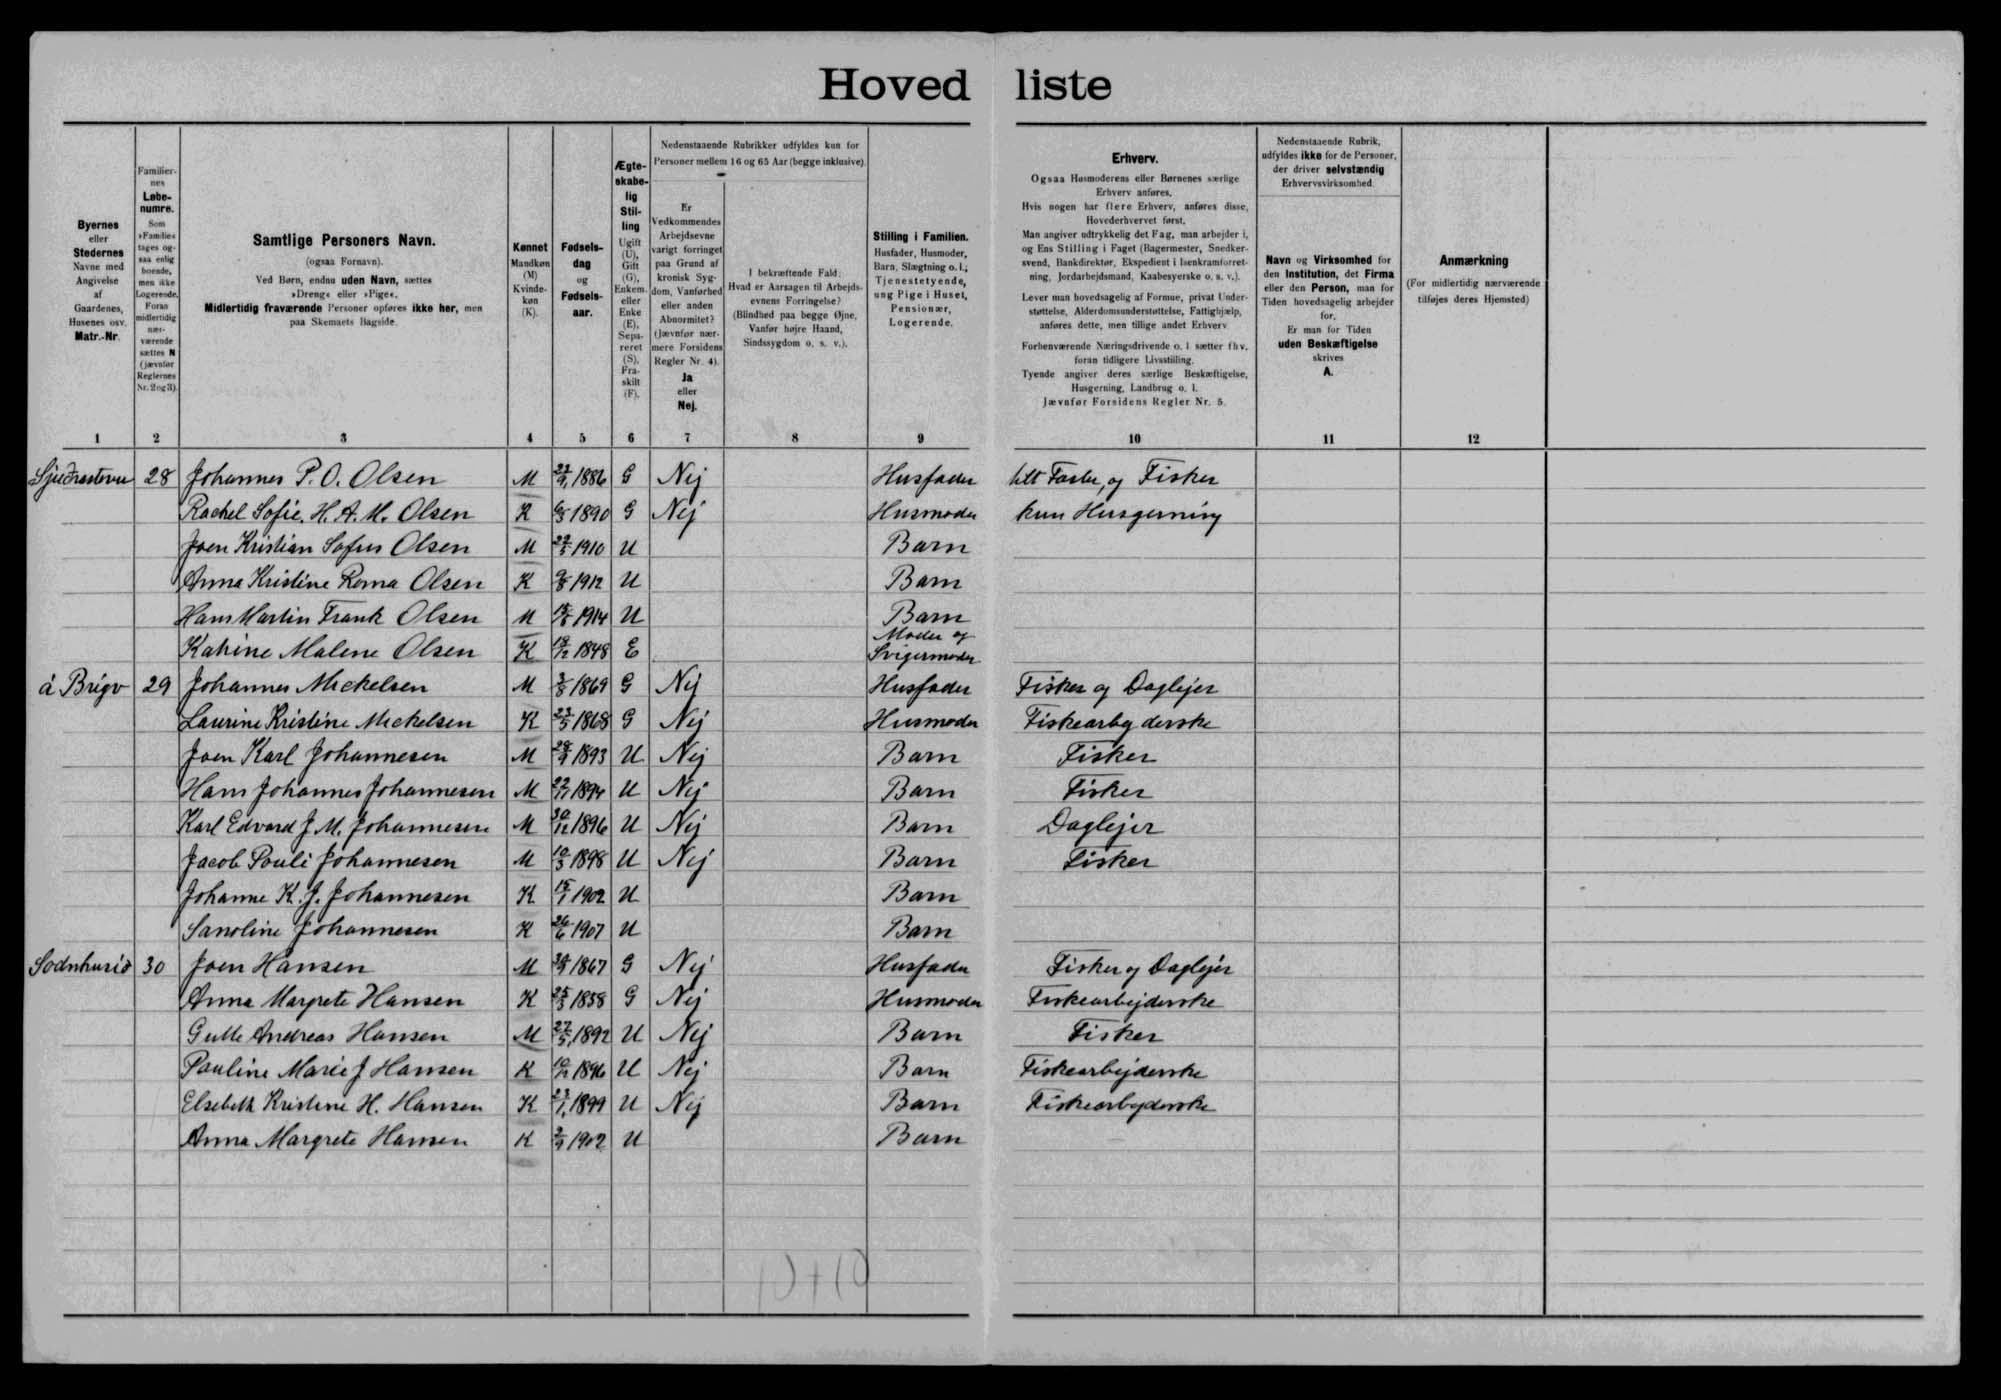 Hoved liste
Byernes
eller
Stedernes
Navne med
Angivelse
af
Gaardenes,
Husenes osv.
Matr.-Nr.
1
Familier-
nes
Løbe-
numre.
Som
»Familie«
tages og-
saa enlig
boende,
men ikke
Logerende.
Foran
midlertidig
nær-
værende
sættes N
(jævnfør
Reglernes
Nr. 2 og 3).
2
Samtlige Personers Navn.
(ogsaa Fornavn).
Ved Børn, endnu uden Navn, sættes
»Dreng« eller »Pige«.
Midlertidig fraværende Personer opføres ikke her, men
paa Skemaets Bagside.
3
Kønnet
Mandkøn
(M)
Kvinde-
køn
(K).
4
Fødsels-
dag
og
Fødsels-
aar.
5
Ægte-
skabe-
lig
Stil-
ling
Ugift
(U),
Gift
(G),
Enkem.
eller
Enke
(E),
Sepa-
reret
(S).
Fra-
skilt
(F).
6
Nedenstaaende Rubrikker udfyldes kun for
Personer mellem 16 og 65 Aar (begge inklusive).
Er
Vedkommendes
Arbejdsevne
varigt forringet
paa Grund af
kronisk Syg-
dom, Vanførhed
eller anden
Abnormitet?
(Jævnfør nær-
mere Forsidens
Regler Nr. 4).
Ja
eller
Nej.
7
I bekræftende Fald:
Hvad er Aarsagen til Arbejds-
evnens Forringelse?
(Blindhed paa begge Øjne,
Vanfør højre Haand,
Sindssygdom o. s. v.).
8
Stilling i Familien.
Husfader, Husmoder,
Barn, Slægtning o. l.;
Tjenestetyende,
ung Pige i Huset,
Pensionær,
Logerende.
9
Erhverv.
Ogsaa Husmoderens eller Børnenes særlige
Erhverv anføres.
Hvis nogen har flere Erhverv, anføres disse,
Hovederhvervet først.
Man angiver udtrykkelig det Fag, man arbejder i,
og Ens Stilling i Faget (Bagermester, Snedker-
svend, Bankdirektør, Ekspedient i Isenkramforret-
ning, Jordarbejdsmand, Kaabesyerske o. s. v.).
Lever man hovedsagelig af Formue, privat Under-
støttelse, Alderdomsunderstøttelse, Fattighjælp,
anføres dette, men tillige andet Erhverv
Forhenværende Næringsdrivende o. l. sætter fhv.
foran tidligere Livsstilling.
Tyende angiver deres særlige Beskæftigelse,
Husgerning, Landbrug o. l.
Jævnfør Forsidens Regler Nr. 5.
10
Nedenstaaende Rubrik,
udfyldes ikke for de Personer,
der driver selvstændig
Erhvervsvirksomhed.
Navn og Virksomhed for
den Institution, det Firma
eller den Person, man for
Tiden hovedsagelig arbejder
for.
Er man for Tiden
uden Beskæftigelse
skrives
A.
11
Anmærkning
(For midlertidig nærværende
tilføjes deres Hjemsted)
12
28 Johannes P. O. Olsen M 1886 G Nej Husfader og Fisker
Rachel Sofie. H. A. M. Olsen K 1890 G Nej Husmoder kun Husgerning
Joen Kristian Sofus Olsen M 1910 U Barn
Anna Kristine Roma Olsen K 1912 U Barn
Hans Martin Frank Olsen M 1914 U Barn
Katrine Malene Olsen K 1848 E Moder og
Svigermoder
á Brigv 29 Johannes Mickelsen M 1869 G Nej Husfader Fisker og Daglejer
Laurine Kristine Mickelsen K 23/5 1868 G Nej Husmoder Fiskearbejderske
Joen Karl Johannesen M 1893 U Nej Barn Fisker
Hans Johannes Johannesen M 1894 U Nej Barn Fisker
Karl Edvard J. M. Johannesen M 30/12 1896 U Nej Barn Daglejer
Jacob Pouli Johannesen M 10/3 1898 U Nej Barn Fisker
Johanne K. J. Johannesen K 15/1 1902 U Barn
Sanoline Johannesen K 26/6 1907 U Barn
30 Joen Hansen M 1867 G Nej Husfader Fisker og Daglejer
Anna Margrete Hansen K 25/3 1858 G Nej Husmoder Fiskearbejderske
Gutte Andreas Hansen M 27/5 1892 U Nej Barn Fisker
Pauline Marie J Hansen K 1896 U Nej Barn Fiskearbejderske
Elsebeth Kristine H. Hansen K 23/1 1899 U Nej Barn Fiskearbejderske
Anna Margrete Hansen K 1902 U Barn